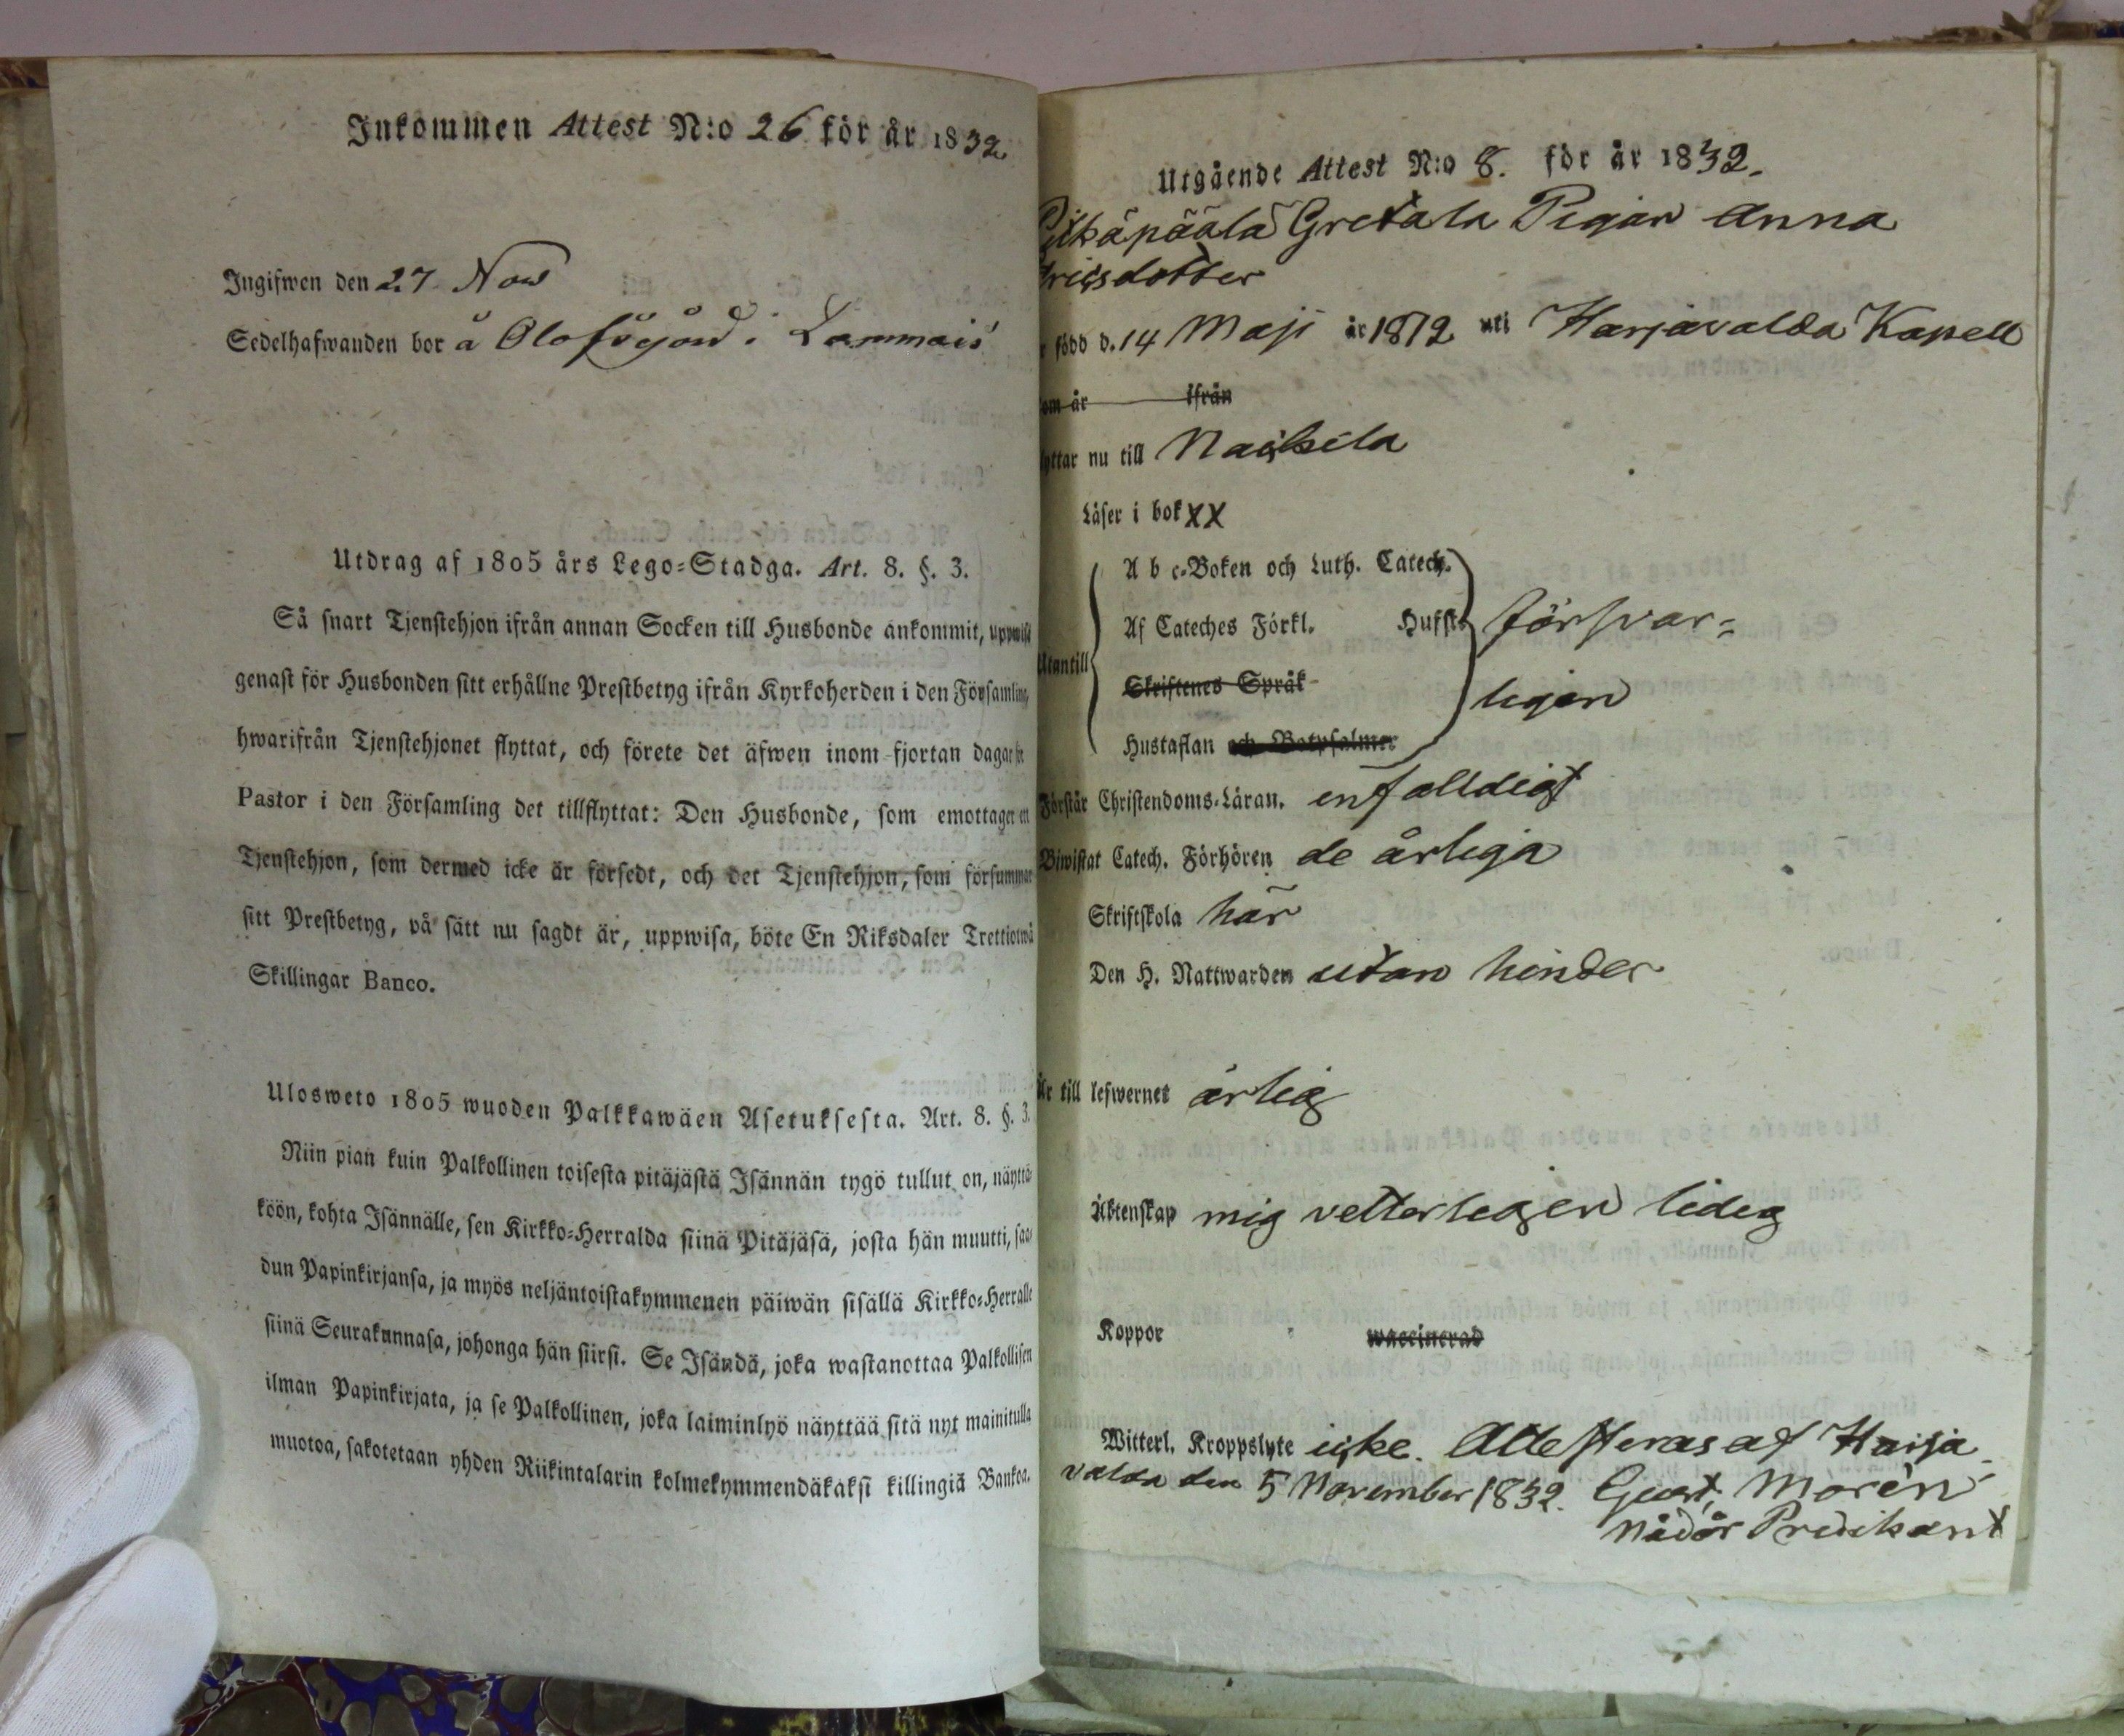 Inkommen Attest N:o 26 för år 1832
Ingifwen den 27 Nov
Sedelhafwanden bor å Olofsgård i Lammais
Utdrag af 1805 års Lego-Stadga. Art. 8. §. 3.
Så snart Tjenstehjon ifrån annan Socken till Husbonde ankommit, uppwise
genast för Husbonden sitt erhållne Prestbetyg ifrån Kyrkoherden i den Församling,
hwarifrån Tjenstehjonet flyttat, och förete det äfwen inom fjortan dagar för
Pastor i den Församling det tillflyttat: Den Husbonde, som emottager en
Tjenstehjon, som dermed icke är försedt, och det Tjenstehjon, som försummar
sitt Prestbetyg, på sätt nu sagdt är, uppwisa, böte En Riksdaler Trettiotwå
Skillingar Banco.
Ulosweto 1805 wuoden Palkkawäen Asetuksesta. Art. 8. §. 3.
Niin pian kuin Palkollinen toisesta pitäjästä Isännän tygö tullut on, näyttä-
köön, kohta Isännälle, sen Kirkko-Herralda siinä Pitäjäsä, josta hän muutti, saa-
dun Papinkirjansa, ja myös neljäntoistakymmenen päiwän sisällä Kirkko-Herralle
siinä Seurakunnasa, johonga hän siirsi. Se Isändä, joka wastanottaa Palkollisen
ilman Papinkirjata, ja se Palkollinen, joka laiminlyö näyttää sitä nyt mainitulla
muotoa, sakotetaan yhden Riikintalarin kolmekymmendäkaksi killingiä Bankoa.
Utgående Attest N:o 8. för år 1832.
Gretala Pigan Anna
född d. 14 Maji år 1812 uti Harjavalda Kapell
om år ifrån
yttar nu till Nackila
Läser i bok XX
A b c-Boken och Luth. Catech.
Af Cateches Förkl. Hufst. försvar=
Utantill
Skriftenes Språk
ligen
Hustaflan och Botpsalmer
Förstår Christendoms-Läran. enfalldigt
Biwistat Catech. Förhören de årliga
Skriftskola här
Den H. Nattwarden utan hinder
Är till lefwernet ärlig
Äktenskap mig vetterligen ledig
Koppor waccinerad
Witterl. Kroppslyte icke. Attesteras af Harja
valda den 5 November 1832. Gust. Morén
Nådår Predikant